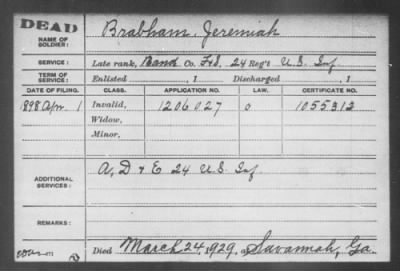 DEAD
NAME OF SOLDIER: Brabham, Jeremiah
SERVICE: Late rank, Band Co. F&S, 24 Reg't U.S. Inf
TERM OF SERVICE: Enlisted , 1 Discharged , 1
DATE OF FILING. CLASS. APPLICATION NO. LAW. CERTIFICATE NO.
1898 Apr. 1 Invalid, 1206027 1055312
Widow,
Minor,
ADDITIONAL SERVICES: A, D & E 24 U.S. Inf
REMARKS:
Died March 24, 1929, at Savannah, Ga.